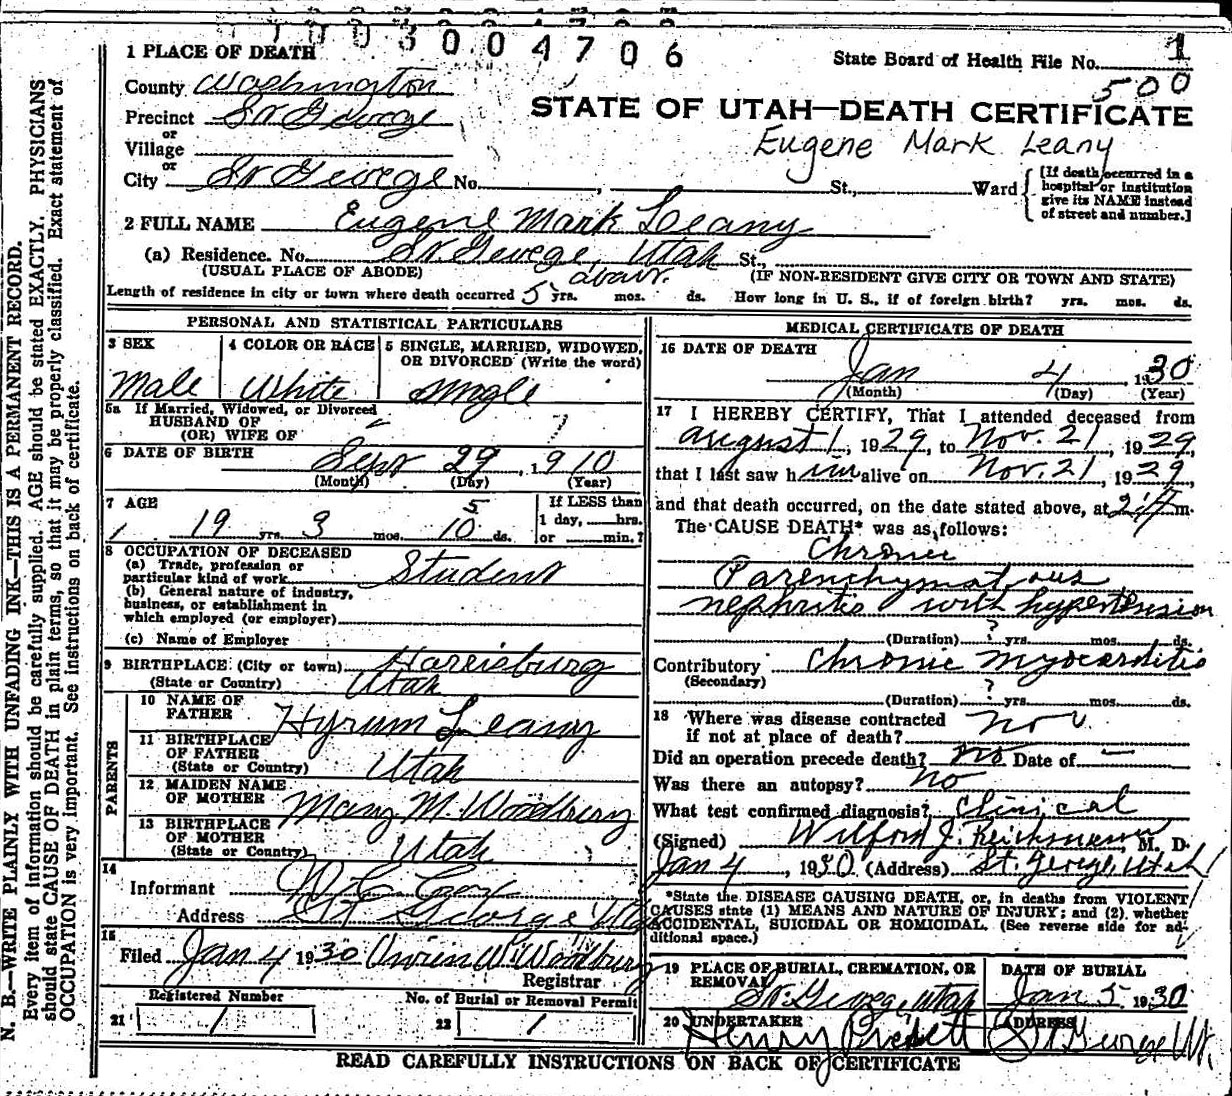 003004706
1 PLACE OF DEATH
State Board of Health File No. 1
500
County Washington
STATE OF UTAH—DEATH CERTIFICATE
Precinct St George
or
Village
Eugene Mark Leany
or
City St George No. St., Ward
[If death occurred in a
hospital or institution
give its NAME instead
of street and number.]
2 FULL NAME Eugene Mark Leany
(a) Residence. No. St George, Utah St.,
(USUAL PLACE OF ABODE) (IF NON-RESIDENT GIVE CITY OR TOWN AND STATE)
about
Length of residence in city or town where death occurred 5 yrs. mos. ds. How long in U. S., if of foreign birth? yrs. mos. ds.
PERSONAL AND STATISTICAL PARTICULARS
3 SEX 4 COLOR OR RACE 5 SINGLE, MARRIED, WIDOWED,
OR DIVORCED (Write the word)
Male White Single
5a If Married, Widowed, or Divorced
HUSBAND OF
(OR) WIFE OF
6 DATE OF BIRTH Sept 29, 1910
(Month) (Day) (Year)
7 AGE If LESS than
5
1 day, hrs.
19 yrs. 3 mos. 10 ds. or min.?
8 OCCUPATION OF DECEASED
(a) Trade, profession or
particular kind of work Student
(b) General nature of industry,
business, or establishment in
which employed (or employer)
(c) Name of Employer
9 BIRTHPLACE (City or town) Harrisburg
(State or Country) Utah
PARENTS
10 NAME OF
FATHER Hyrum Leany
11 BIRTHPLACE
OF FATHER
(State or Country) Utah
12 MAIDEN NAME
OF MOTHER Mary M. Woodbury
13 BIRTHPLACE
OF MOTHER
(State or Country) Utah
14
Informant
Address St George Utah
15
Filed Jan 4 1930 Vivien W. Woodbury
Registrar
Registered Number No. of Burial or Removal Permit
21 1 22 1
MEDICAL CERTIFICATE OF DEATH
16 DATE OF DEATH
Jan 4, 1930
(Month) (Day) (Year)
17 I HEREBY CERTIFY, That I attended deceased from
August 1, 1929, to Nov. 21, 1929,
that I last saw him alive on Nov. 21, 1929,
and that death occurred, on the date stated above, at m.
The CAUSE DEATH* was as follows:
Chronic
Parenchymatous
nephritis with hypertension
(Duration) ? yrs. mos. ds.
Contributory Chronic Myocarditis
(Secondary)
(Duration) ? yrs. mos. ds.
18 Where was disease contracted
if not at place of death?
Did an operation precede death? No Date of —
Was there an autopsy? No
What test confirmed diagnosis? Clinical
(Signed) Wilford J. Reichmann, M. D.
Jan 4, 1930. (Address) St. George, Utah
*State the DISEASE CAUSING DEATH, or, in deaths from VIOLENT
CAUSES state (1) MEANS AND NATURE OF INJURY; and (2) whether
ACCIDENTAL, SUICIDAL OR HOMICIDAL. (See reverse side for ad-
ditional space.)
19 PLACE OF BURIAL, CREMATION, OR
REMOVAL
St. George, Utah
DATE OF BURIAL
Jan 5 1930
20 UNDERTAKER ADDRESS
Henry St George Ut.
READ CAREFULLY INSTRUCTIONS ON BACK OF CERTIFICATE
N. B.—WRITE PLAINLY WITH UNFADING INK—THIS IS A PERMANENT RECORD.
Every item of information should be carefully supplied. AGE should be stated EXACTLY. PHYSICIANS
should state CAUSE OF DEATH in plain terms, so that it may be properly classified. Exact statement of
OCCUPATION is very important. See instructions on back of certificate.